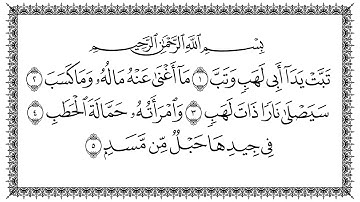 بِسْمِ اللَّهِ الرَّحْمَٰنِ الرَّحِيمِ
تَبَّتْ يَدَآ أَبِى لَهَبٍ وَتَبَّ ١ مَآ أَغْنَىٰ عَنْهُ مَالُهُۥ وَمَا كَسَبَ ٢
سَيَصْلَىٰ نَارًا ذَاتَ لَهَبٍ ٣ وَٱمْرَأَتُهُۥ حَمَّالَةَ ٱلْحَطَبِ ٤
فِى جِيدِهَا حَبْلٌ مِّن مَّسَدٍۭ ٥